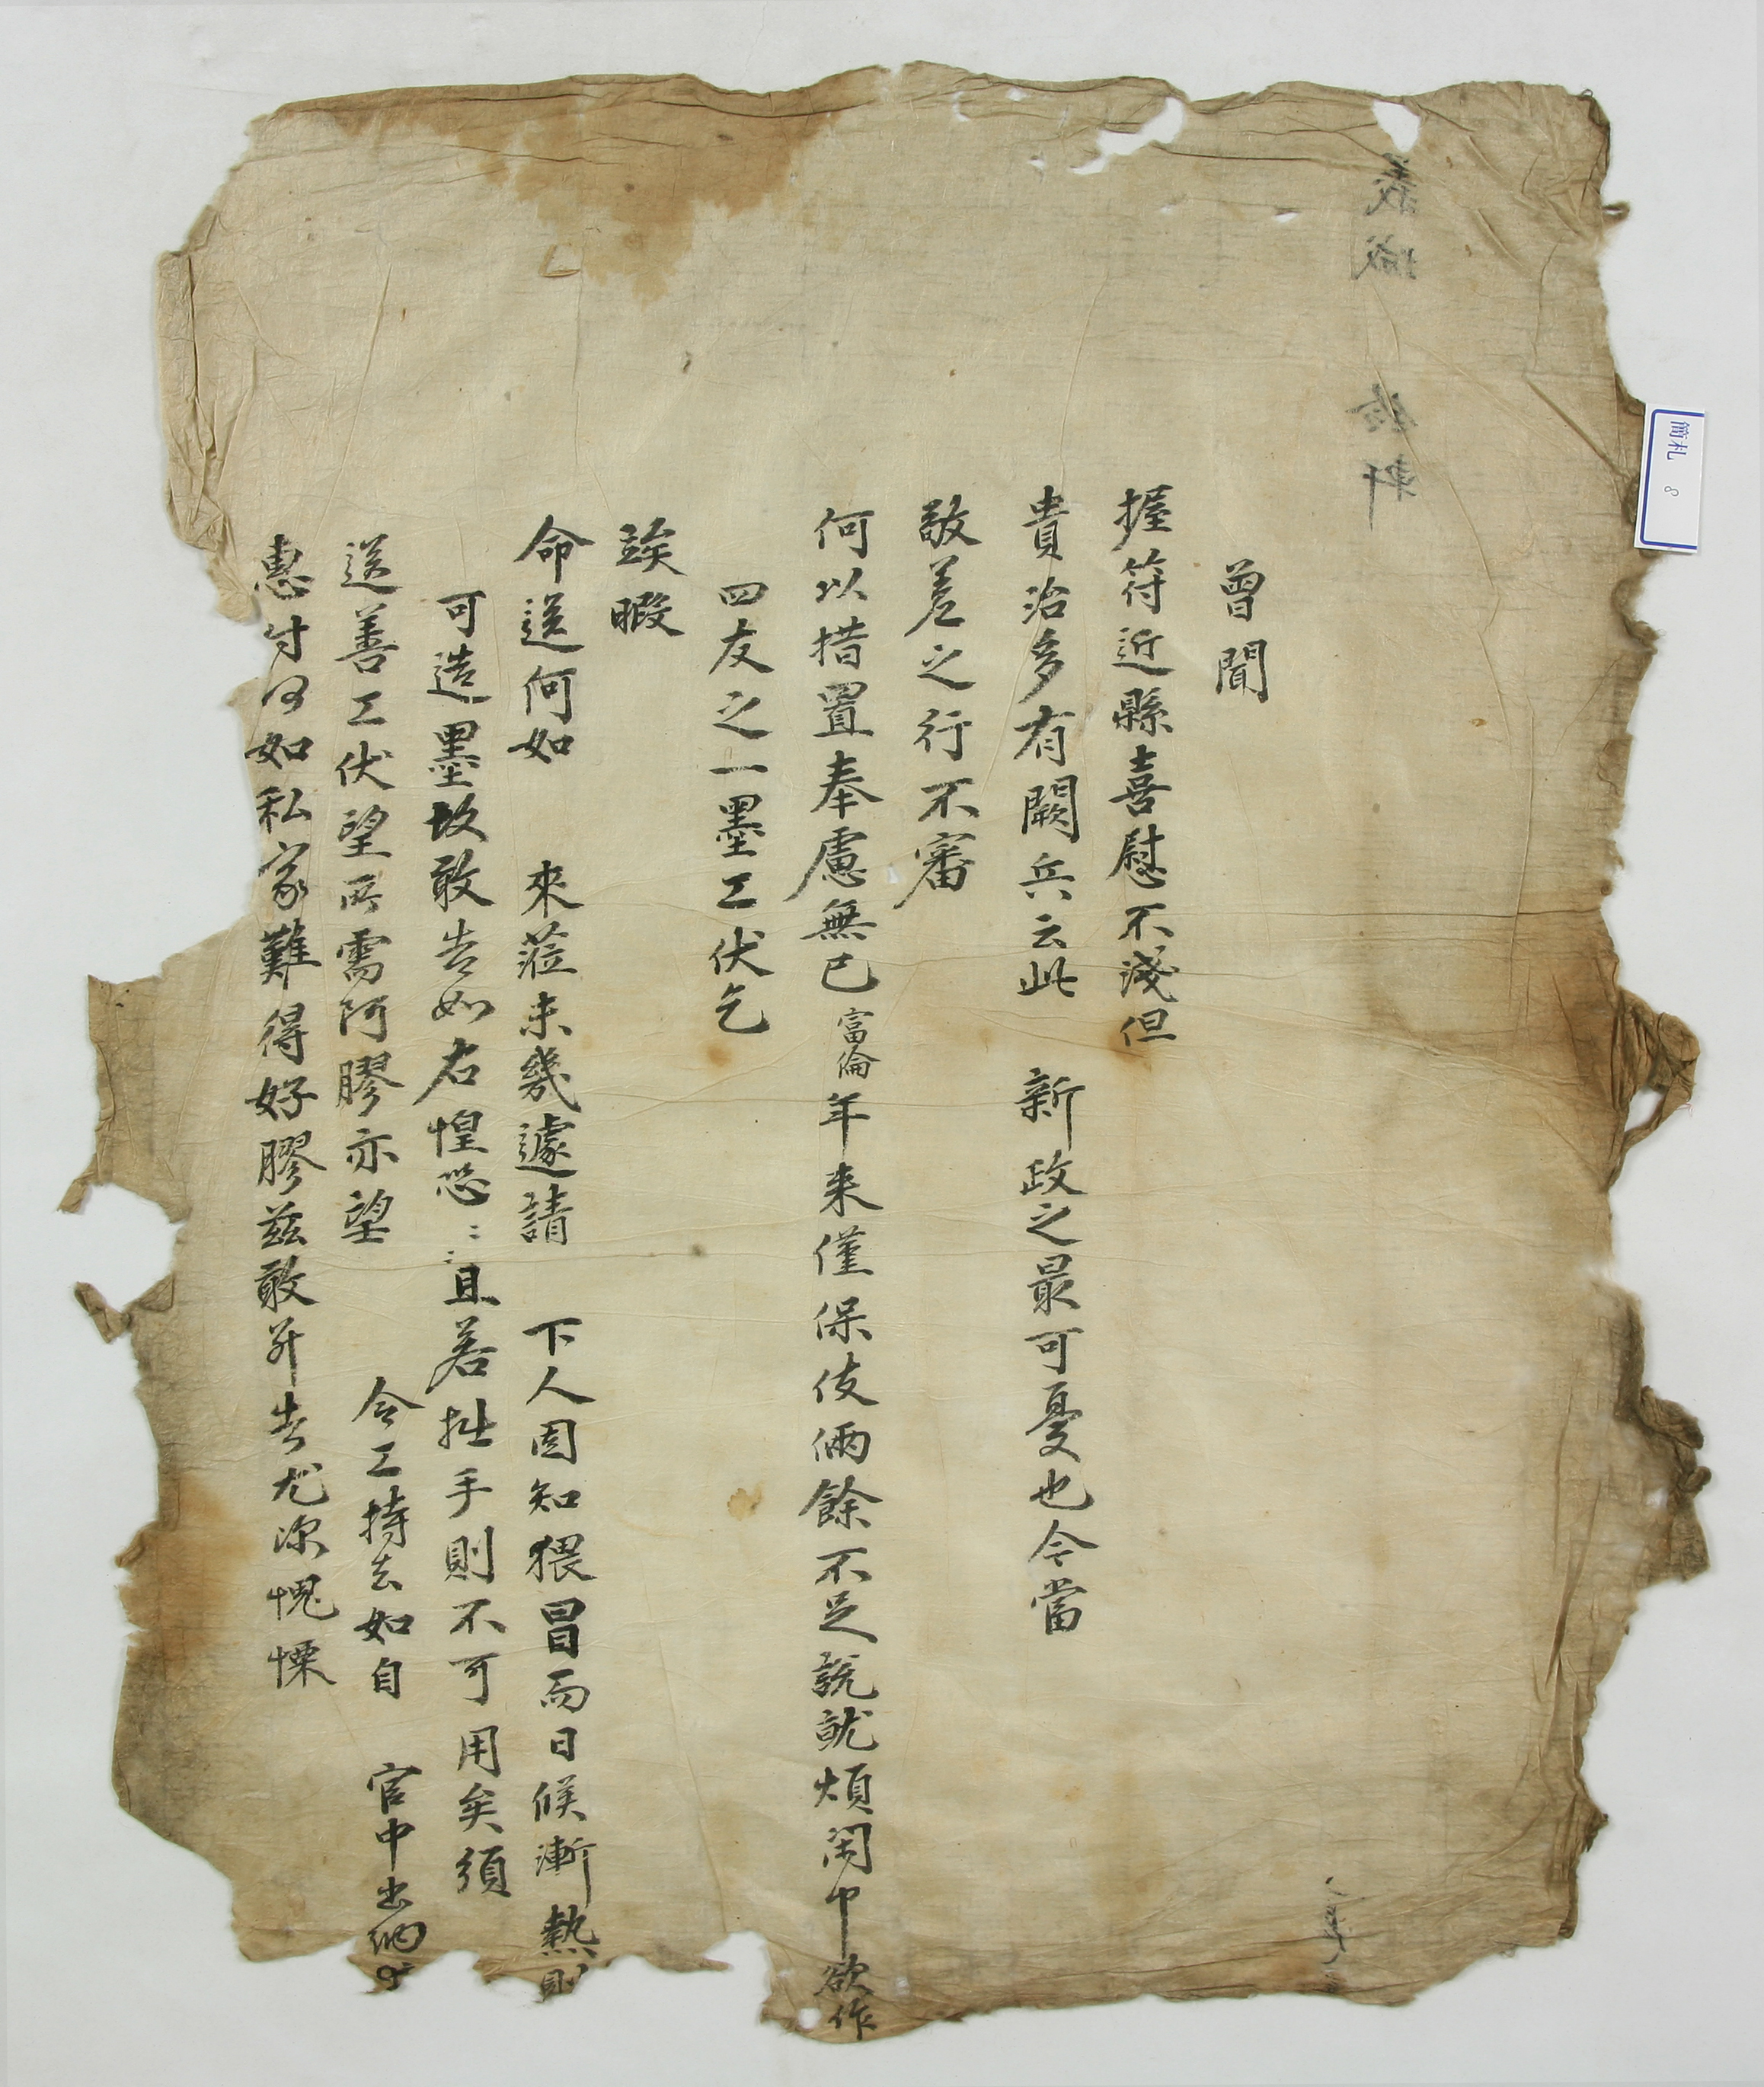 簡札 8
義城 鈴軒
曾聞
握符近縣喜慰不淺但
貴治多有闕兵云此 新政之最可憂也今當
敬差之行不審
何以措置奉慮無已富倫年來僅保伎倆餘不足說就煩閑中欲作
四友之一墨工伏乞
竢暇
命送何如 來蒞未幾遽請 下人固知猥冒而日候漸熱則
可造墨故敢告如右惶恐〻〻且若拙手則不可用矣須
送善工伏望所需阿膠亦望 令工持去如自 官中出納
惠付何如私家難得好膠玆敢幷告尤深愧慄